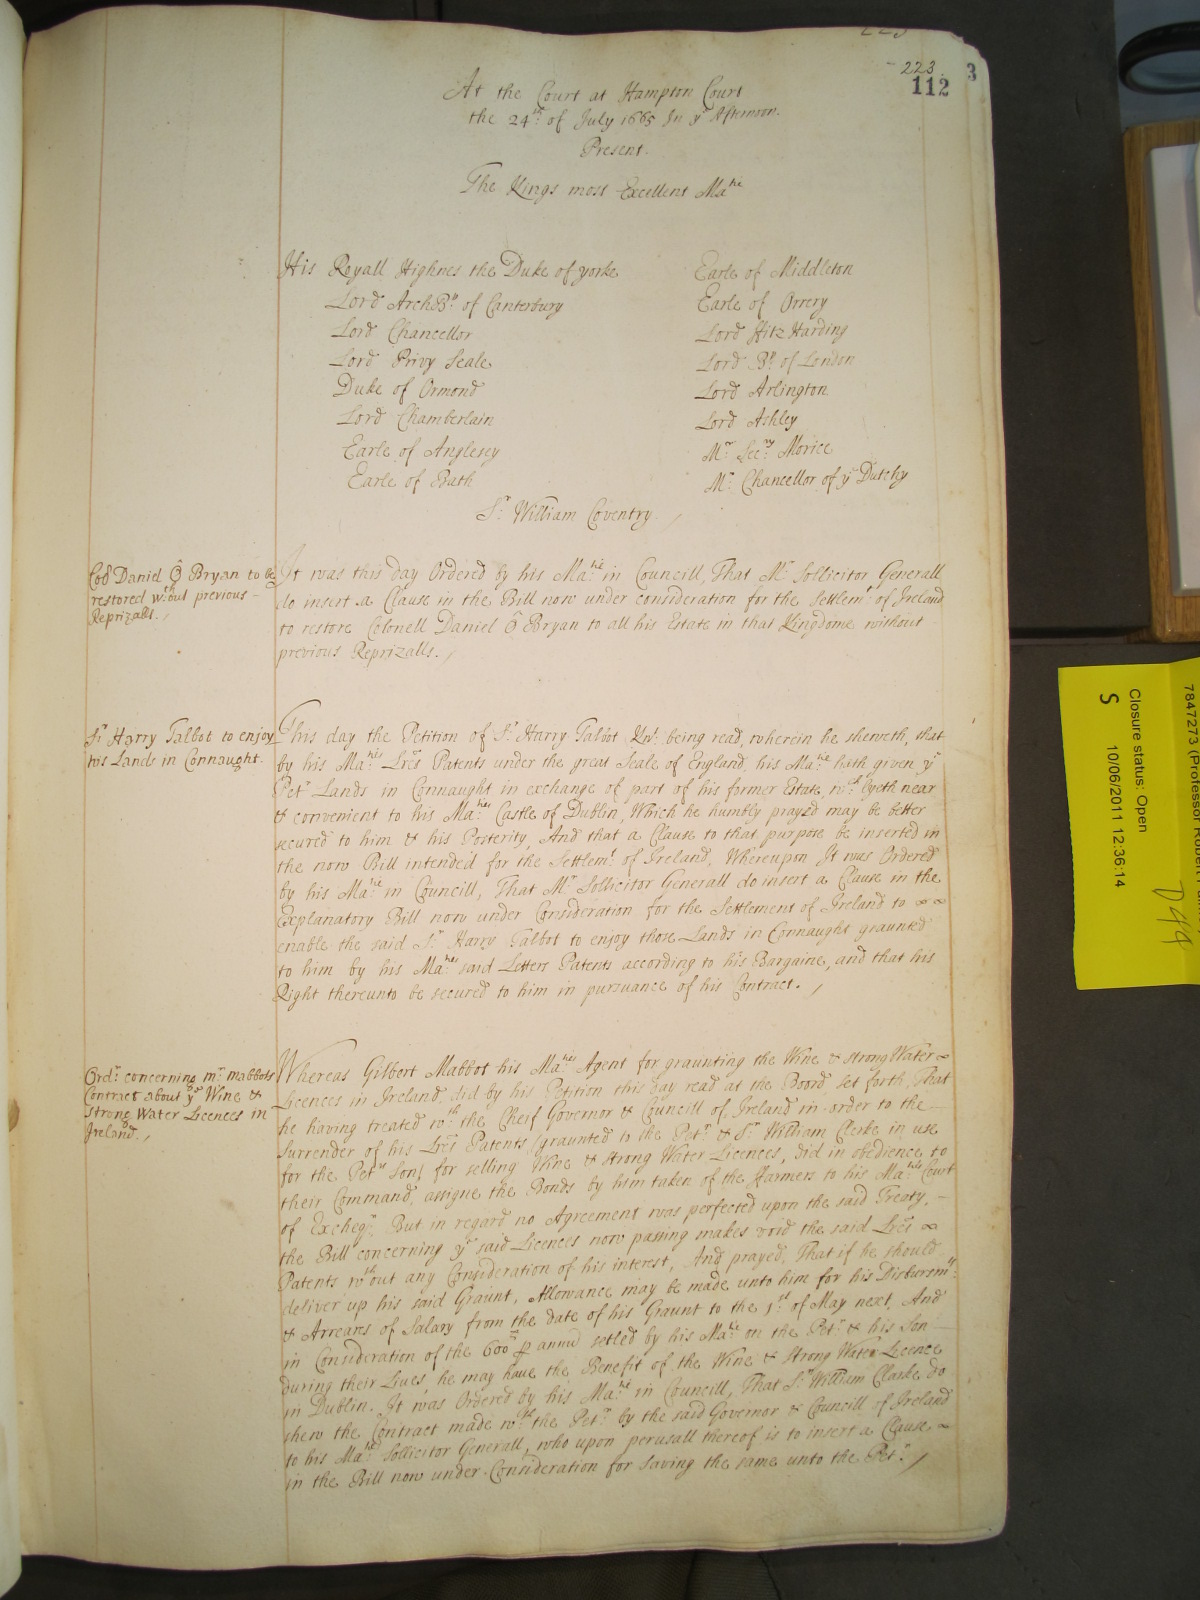 223
112
3
At the Court at Hampton Court
the 24th of July 1665 In ye Afternoon.
Present.
The Kings most Excellent Matie
His Royall Highnes the Duke of yorke
Lord ArchBp of Canterbury
Lord Chancellor
Lord Privy Seale
Duke of Ormond
Lord Chamberlain
Earle of Anglesey
Earle of Bath
Earle of Middleton
Earle of Orrery
Lord Fitz Harding
Lord Bp of London
Lord Arlington
Lord Ashley
Mr Secry Morice
Mr Chancellor of ye Dutchy
Sr William Coventry.
Coll Daniel Ô Bryan to be
restored wthout previous
Reprizalls.
It was this day Ordered by his Matie in Councill, That Mr Sollicitor Generall
do insert a Clause in the Bill now under consideration for the Settlemt of Ireland
to restore Colonell Daniel Ô Bryan to all his Estate in that Kingdome without
previous Reprizalls.
Sr Harry Talbot to enjoy
his Lands in Connaught.
This day the Petition of Sr Harry Talbot Knt being read, wherein he sheweth, that
by his Maties Lres Patents under the great Seale of England, his Matie hath given ye
Petr Lands in Connaught in exchange of part of his former Estate, wch lyeth near
& convenient to his Maties Castle of Dublin, Which he humbly prayed may be better
secured to him & his Posterity, And that a Clause to that purpose be inserted in
the now Bill intended for the Settlemt of Ireland, Whereupon It was Ordered
by his Matie in Councill, That Mr Sollicitor Generall do insert a Clause in the
Explanatory Bill now under Consideration for the Settlement of Ireland to
enable the said Sr Harry Talbot to enjoy those Lands in Connaught graunted
to him by his Maties said Letters Patents according to his Bargaine, and that his
Right thereunto be secured to him in pursuance of his Contract.
Ordr concerning mr mabbots
Contract about ye Wine &
strong Water Licences in
Ireland.
Whereas Gilbert Mabbot his Maties Agent for graunting the Wine & strong Water
Licences in Ireland, did by his Petition this day read at the Boord set forth, That
he having treated wth the Cheif Governor & Councill of Ireland in order to the
Surrender of his Lres Patents (graunted to the Petr & Sr William Clerke in use
for the Petrs son) for selling Wine & Strong Water Licences, did in obedience to
their Command, assigne the Bonds by him taken of the Farmers to his Maties Court
of Excheqr. But in regard no Agreement was perfected upon the said Treaty,
the Bill concerning ye said Licences now passing makes void the said Lres
Patents wthout any Consideration of his interest, And prayed, That if he should
deliver up his said Graunt, Allowance may be made unto him for his Disbursmts
& Arreares of Salary from the date of his Graunt to the 1st of May next, And
in Consideration of the 600li p annu setled by his Matie on the Petr & his Son
during their Lives, he may have the Benefit of the Wine & Strong Water Licence
in Dublin. It was Ordered by his Matie in Councill, That Sr William Clarke do
shew the Contract made wth the Petr by the said Governor & Councill of Ireland
to his Maties Sollicitor Generall, who upon perusall thereof is to insert a Clause
in the Bill now under Consideration for saving the same unto the Petr.
7847273 (Professor Robert
Closure status: Open
S
10/06/2011 12:36:14